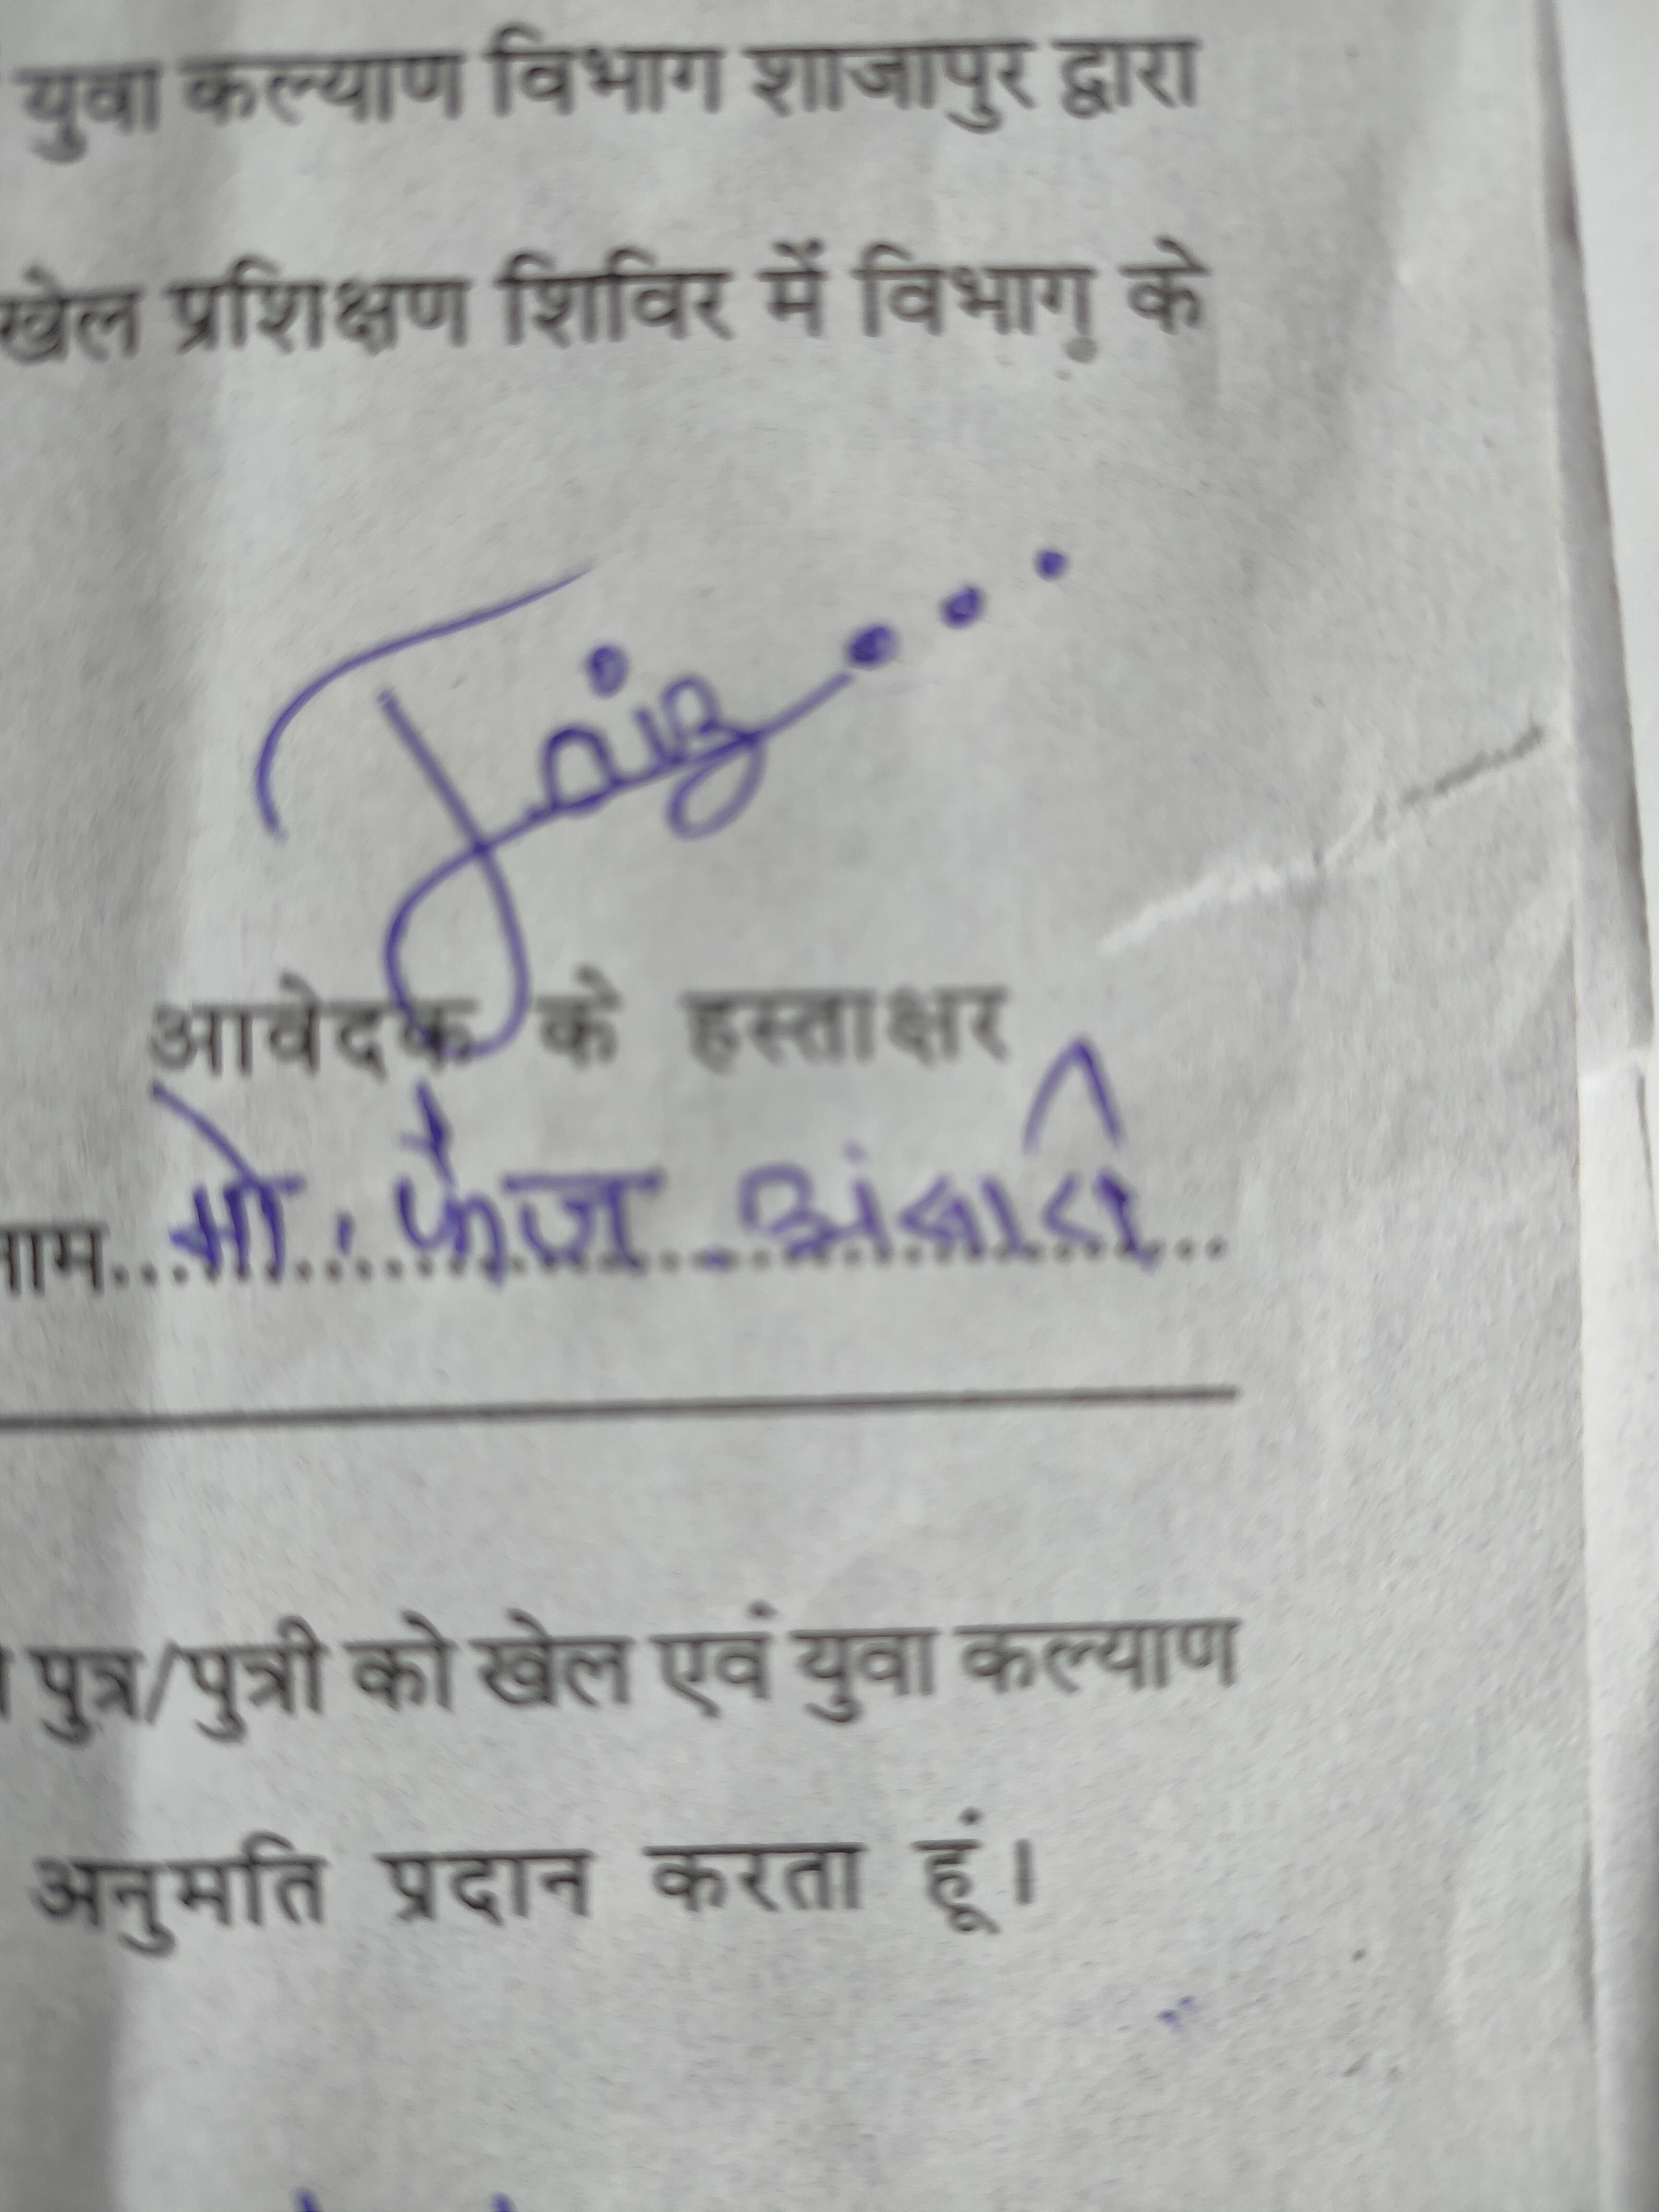 युवा कल्याण विभाग शाजापुर द्वारा
खेल प्रशिक्षण शिविर में विभाग के
Faiz...
आवेदक के हस्ताक्षर
नाम... मो. फैज अंसारी...
पुत्र/पुत्री को खेल एवं युवा कल्याण
अनुमति प्रदान करता हूं।